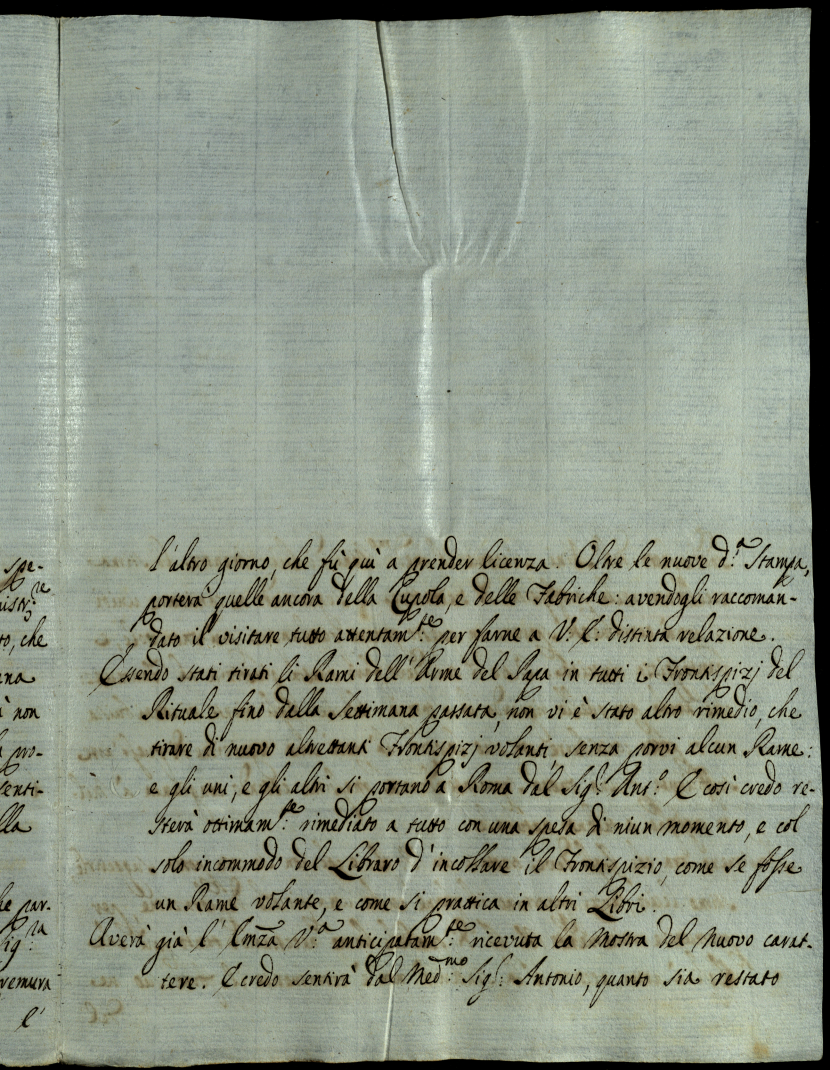 spe-
nistr:re
to, che
ena
à non
pro-
senti-
lla
he par-
Sig:ra
remura
l'
l'altro giorno, che fù quì a prender licenza. Oltre le nuove d:a Stampa,
porterà quelle ancora della Cupola, e delle Fabriche: avendogli raccoman-
dato il visitare tutto attentam:te per farne a V: E: distinta relazione.
Essendo stati tirati li Rami dell'Arme del Papa in tutti i Frontispizj del
Rituale fino dalla Settimana passata, non vi è stato altro rimedio, che
tirare di nuovo altrettanti Frontispizj volanti, senza porvi alcun Rame:
e gli uni, e gli altri si portano a Roma dal Sig:r Ant:o E così credo re-
sterà ottimam:te rimediato a tutto con una spesa di niun momento, e col
solo incommodo del Libraro d'incollare il Frontispizio, come se fosse
un Rame volante, e come si prattica in altri Libri.
Averà già l'Emza V:a anticipatam:te ricevuta la Mostra del Nuovo carat-
tere. E credo sentirà dal Med:mo Sig:r Antonio, quanto sia restato